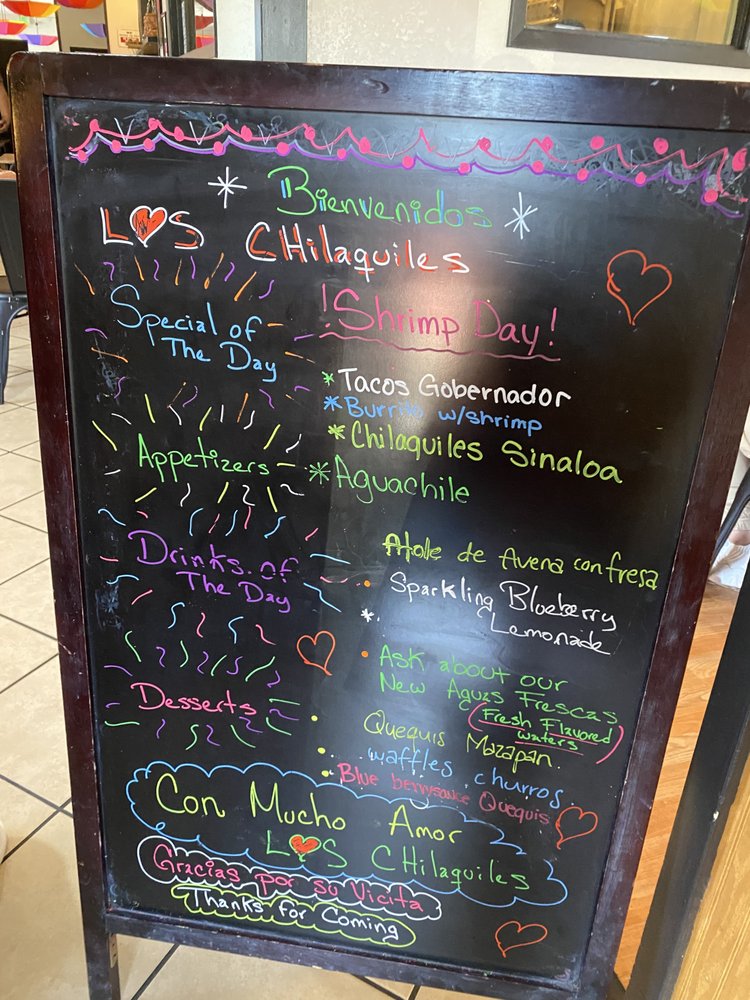 Bienvenidos
LOS CHilaquiles
Special of
The Day
!Shrimp Day!
*Tacos Gobernador
*Burrito w/shrimp
*Chilaquiles Sinaloa
Appetizers
*Aguachile
Drinks of
The Day
Atole de Avena con fresa
Sparkling Blueberry
Lemonade
Ask about our
New Aguas Frescas
(Fresh Flavored
waters)
Desserts
Quequis Mazapan.
waffles churros.
Blue berrysauce Quequis
Con Mucho Amor
LOS CHilaquiles
Gracias por su Vicita
Thanks for Coming